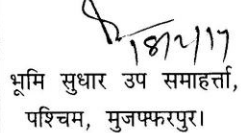 18/2/17
भूमि सुधार उप समाहर्त्ता,
पश्चिम, मुजफ्फरपुर।